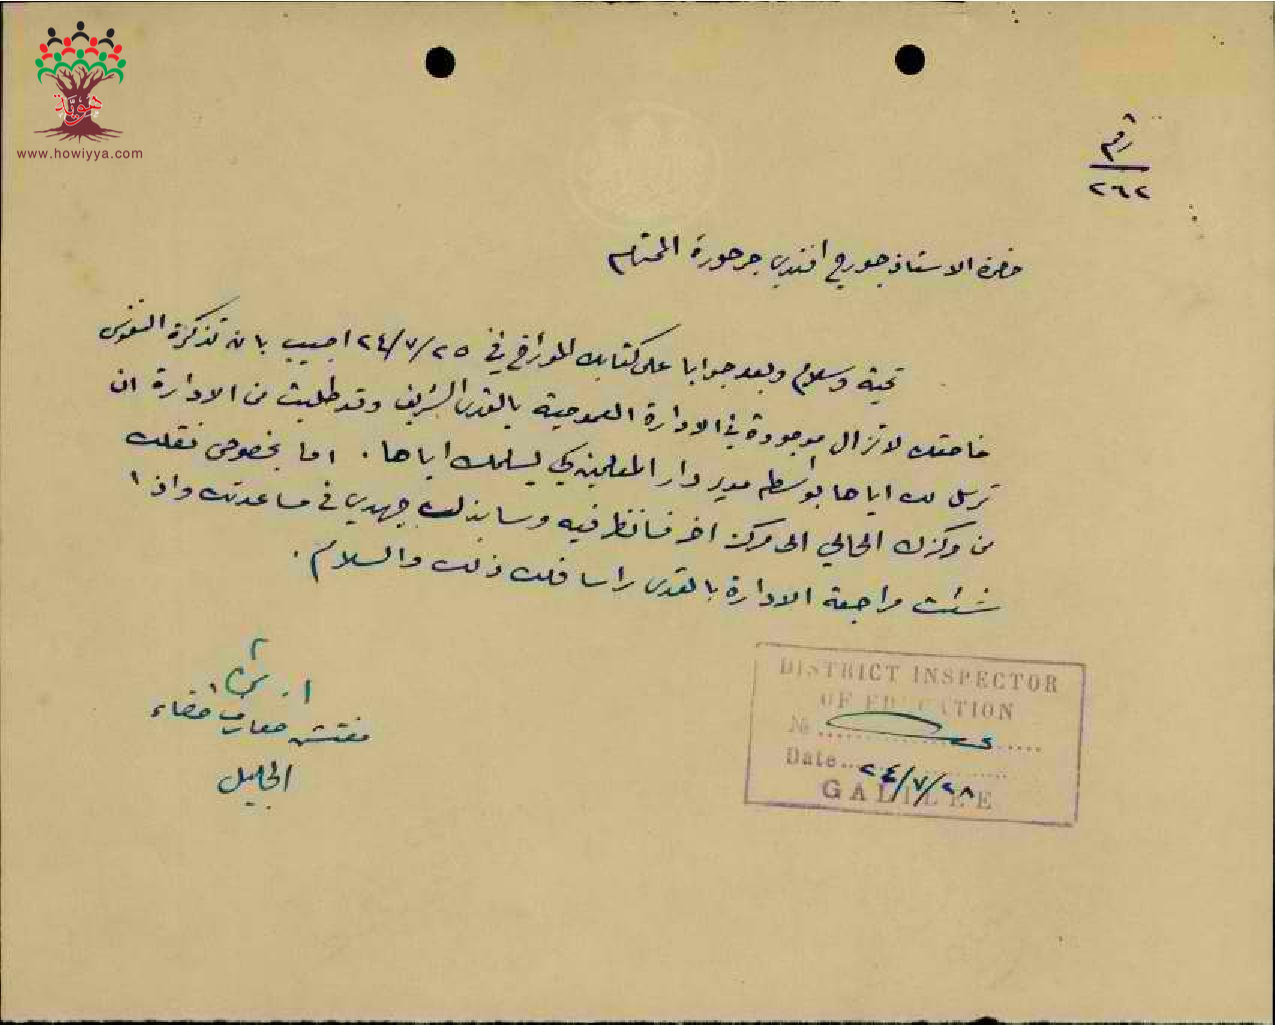 هوية
www.howiyya.com
رقم
٢٦٢
حضرة الاستاذ جورج افندي جرجورة المحترم
تحية وسلام وبعد جوابا على كتابك المؤرخ في ٢٥/٧/٢٤ اجيب بان تذكرة النفوس
خاصتك لا تزال موجودة في الادارة العمومية بالقدس الشريف وقد طلبت من الادارة ان
ترسل لك اياها بواسطة مدير دار المعلمين كي يسلمك اياها . اما بخصوص نقلك
من مركزك الحالي الى مركز اخر فسانظر فيه وسابذل جهدي في مساعدتك واذا
شئت مراجعة الادارة بالقدس راسا فلك ذلك والسلام .
مفتش معارف قضاء
الجليل
DISTRICT INSPECTOR
OF EDUCATION
№
Date ٢٨/٧/٢٤
GALILEE